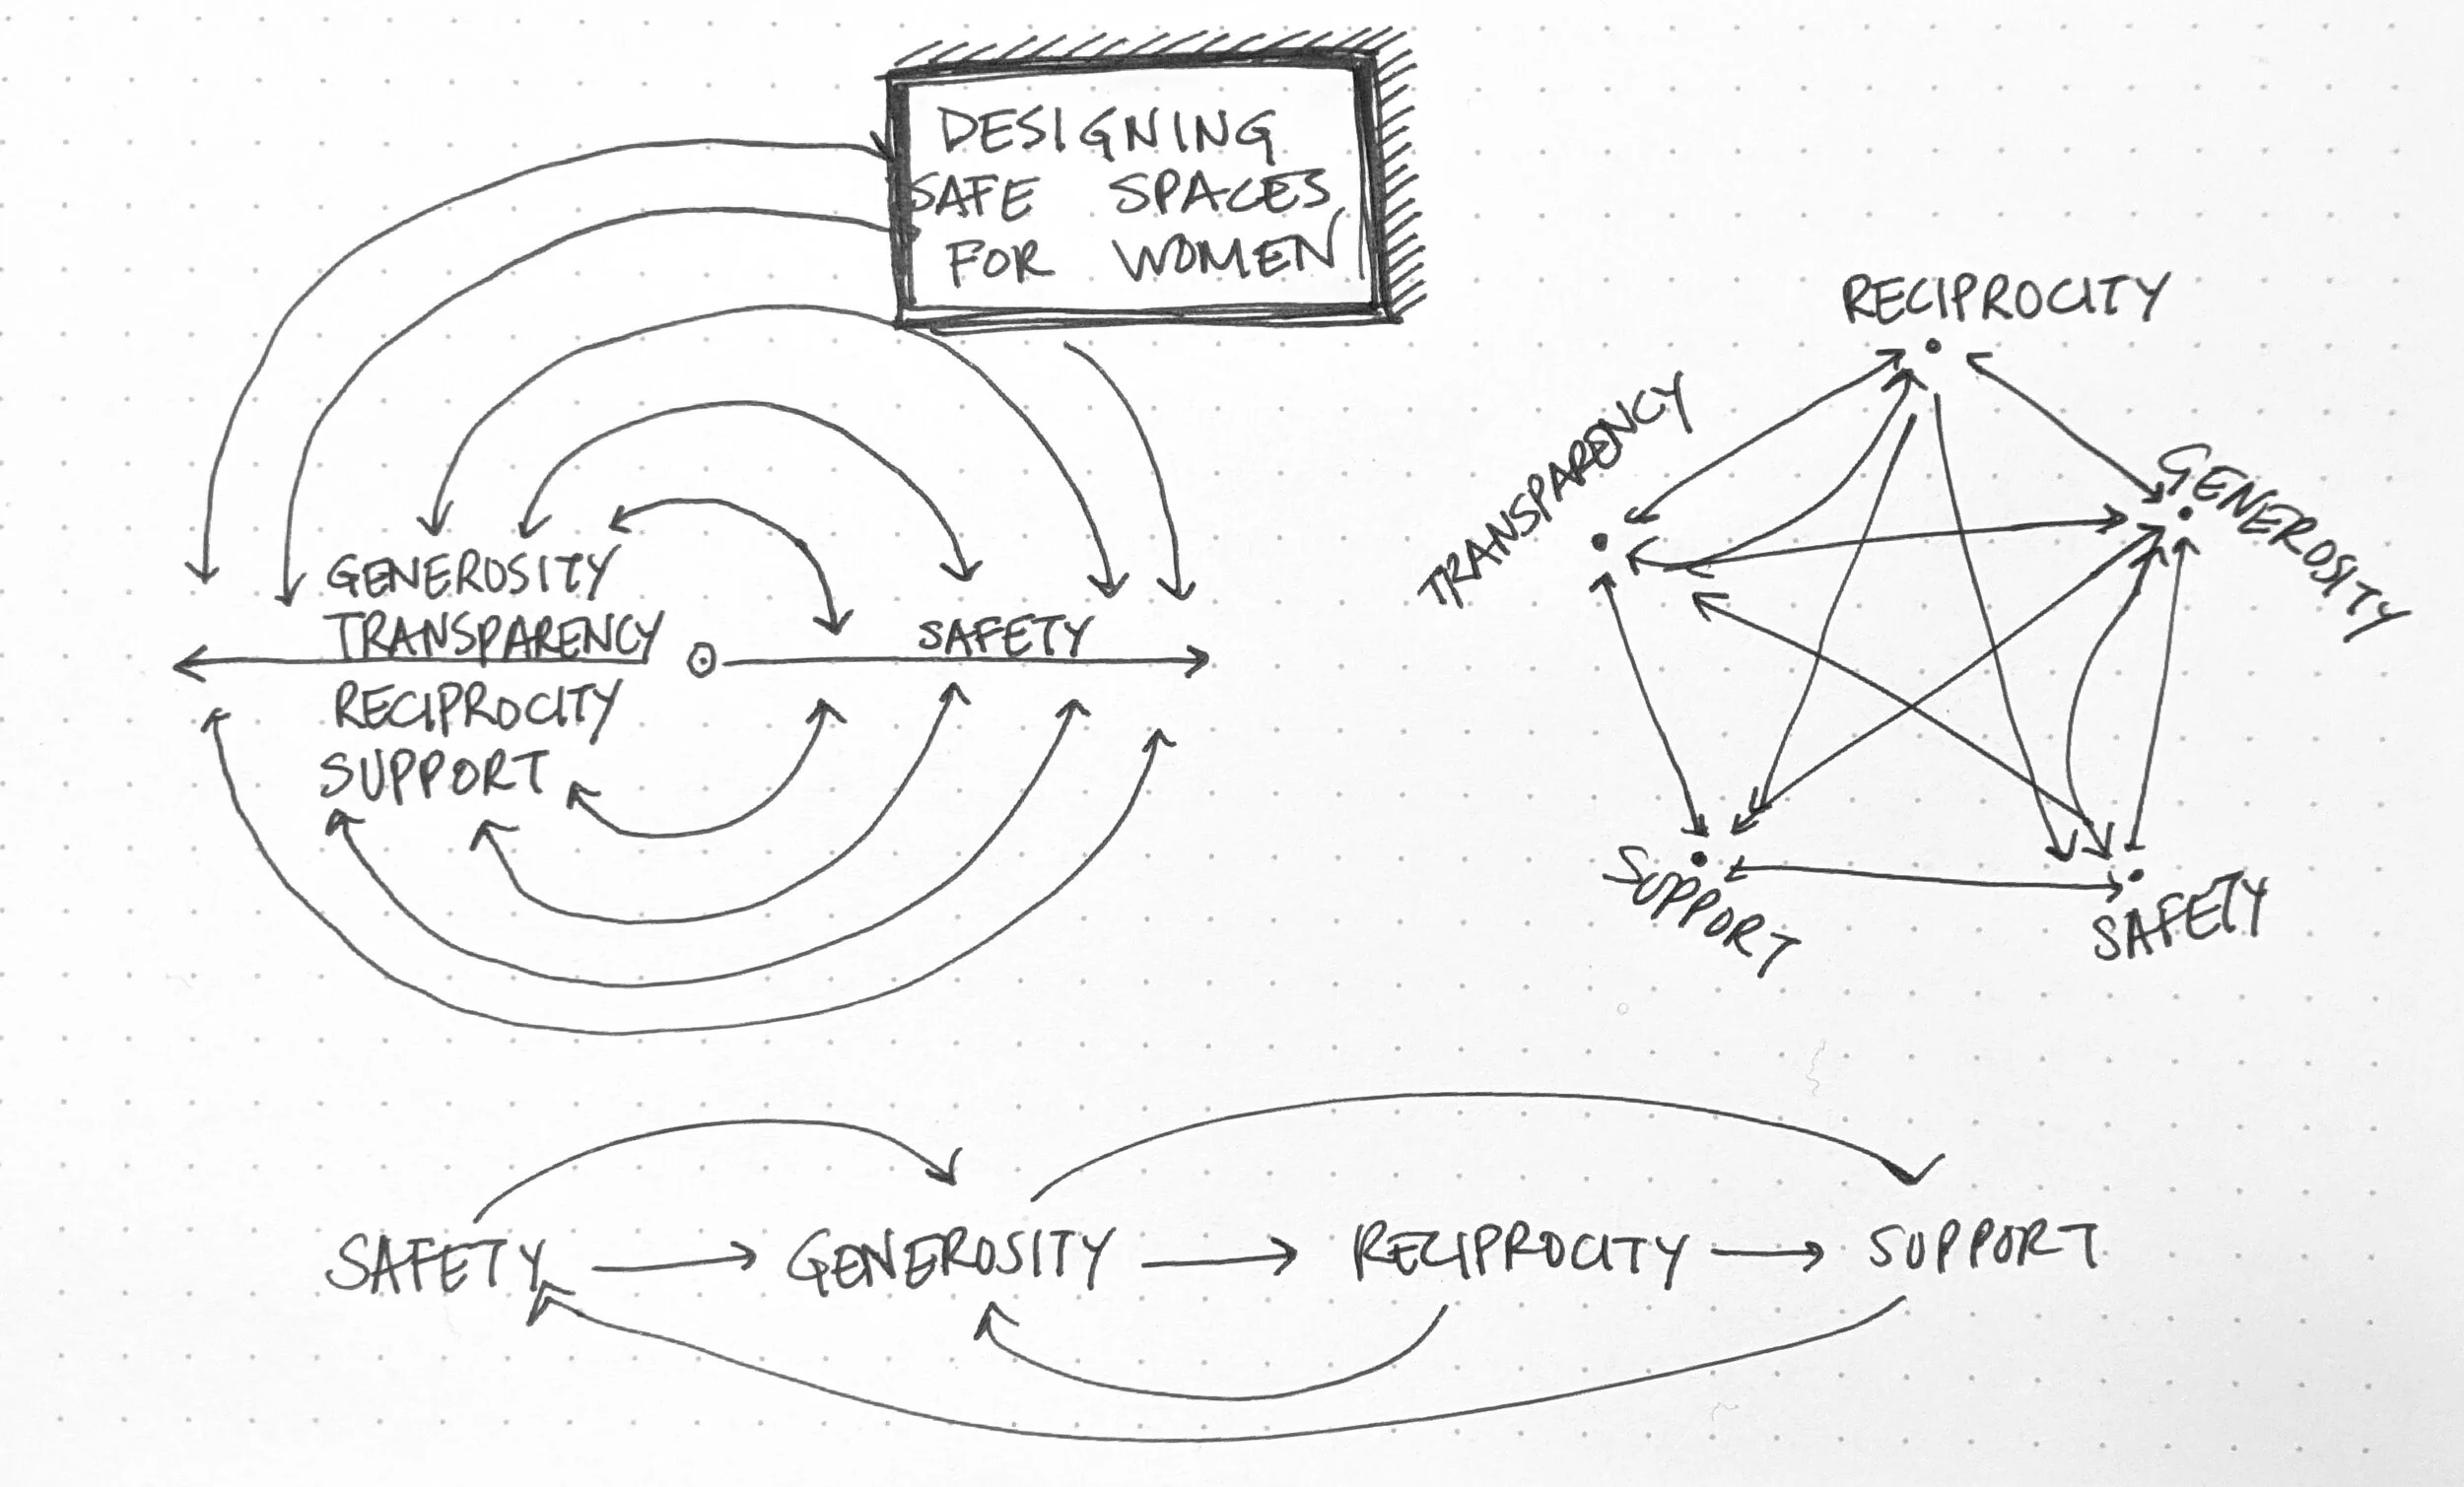 DESIGNING
SAFE SPACES
FOR WOMEN
GENEROSITY
TRANSPARENCY
SAFETY
RECIPROCITY
SUPPORT
RECIPROCITY
TRANSPARENCY
GENEROSITY
SUPPORT
SAFETY
SAFETY GENEROSITY RECIPROCITY SUPPORT